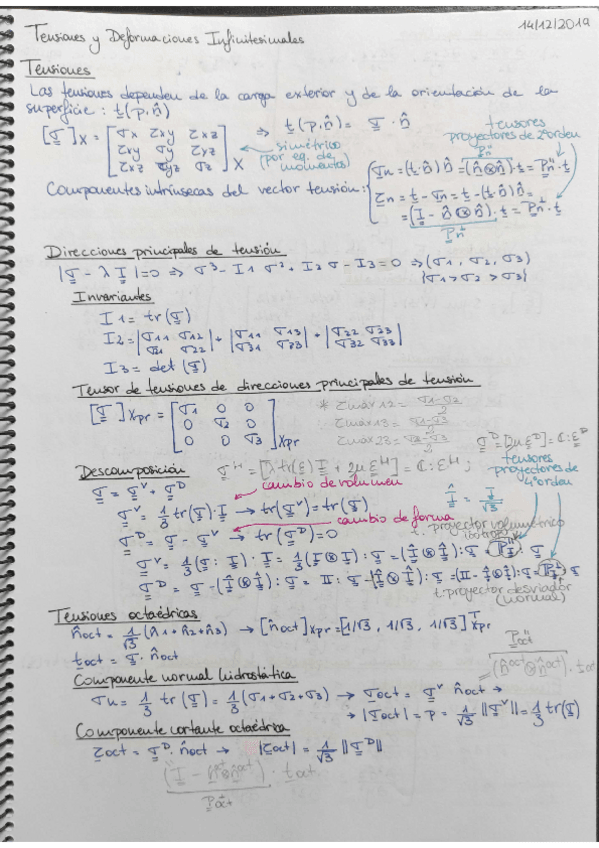 14/12/2019
Tensiones y Deformaciones Infinitesimales
Tensiones
Las tensiones dependen de la carga exterior y de la orientación de la
superficie: t(p,n̂)
[σ]x = [σx τxy τxz; τxy σy τyz; τxz τyz σz]x ⇒ t(p,n̂) = σ · n̂
simétrico
(por eq. de
momentos)
tensores
proyectores de 2º orden
Componentes intrínsecas del vector tensión:
σn = (t·n̂) n̂ = (n̂⊗n̂)·t = Pn̂''·t
τn = t - σn = t - (t·n̂) n̂ =
= (I - n̂⊗n̂)·t = Pn̂⊥·t
Direcciones principales de tensión
|σ - λ I| = 0 ⇒ σ³ - I1 σ² + I2 σ - I3 = 0 ⇒ (σ1, σ2, σ3)
|σ1 > σ2 > σ3|
Invariantes
I1 = tr(σ)
I2 = |σ11 σ12; σ21 σ22| + |σ11 σ13; σ31 σ33| + |σ22 σ23; σ32 σ33|
I3 = det(σ)
Tensor de tensiones de direcciones principales de tensión
[σ]xpr = [σ1 0 0; 0 σ2 0; 0 0 σ3]xpr
* τmáx12 = σ1-σ2/2
τmáx13 = σ1-σ3/2
τmáx23 = σ2-σ3/2
σᴰ = [2μ εᴰ] = ℂ:εᴰ
Descomposición
σᴴ = [λ tr(ε) I + 2μ εᴴ] = ℂ:εᴴ ;
tensores
proyectores de
4º orden
σ = σⱽ + σᴰ
cambio de volumen
Î = I/√3
σⱽ = 1/3 tr(σ)·I → tr(σⱽ) = tr(σ)
cambio de forma
σᴰ = σ - σⱽ → tr(σᴰ) = 0
t. proyector volumétrico
σⱽ = 1/3 (σ : I)·I = 1/3 (I⊗I):σ = (Î⊗Î):σ
σᴰ = σ - (Î⊗Î):σ = II:σ - (Î⊗Î):σ = (II - Î⊗Î):σ
t. proyector desviador
(normal)
Tensiones octaédricas
n̂oct = 1/√3 (n̂1+n̂2+n̂3) → [n̂oct]xpr = [1/√3, 1/√3, 1/√3]ᵀxpr
toct = σ · n̂oct
Poct''
= (n̂oct⊗n̂oct)·toct
Componente normal hidrostática
σn = 1/3 tr(σ) = 1/3 (σ1+σ2+σ3) → σoct = σⱽ n̂oct →
→ |σoct| = p = 1/√3 ||σⱽ|| = 1/3 tr(σ)
Componente cortante octaédrica
τoct = σᴰ · n̂oct → |τoct| = 1/√3 ||σᴰ||
(I - n̂oct⊗n̂oct) · toct
Poct⊥